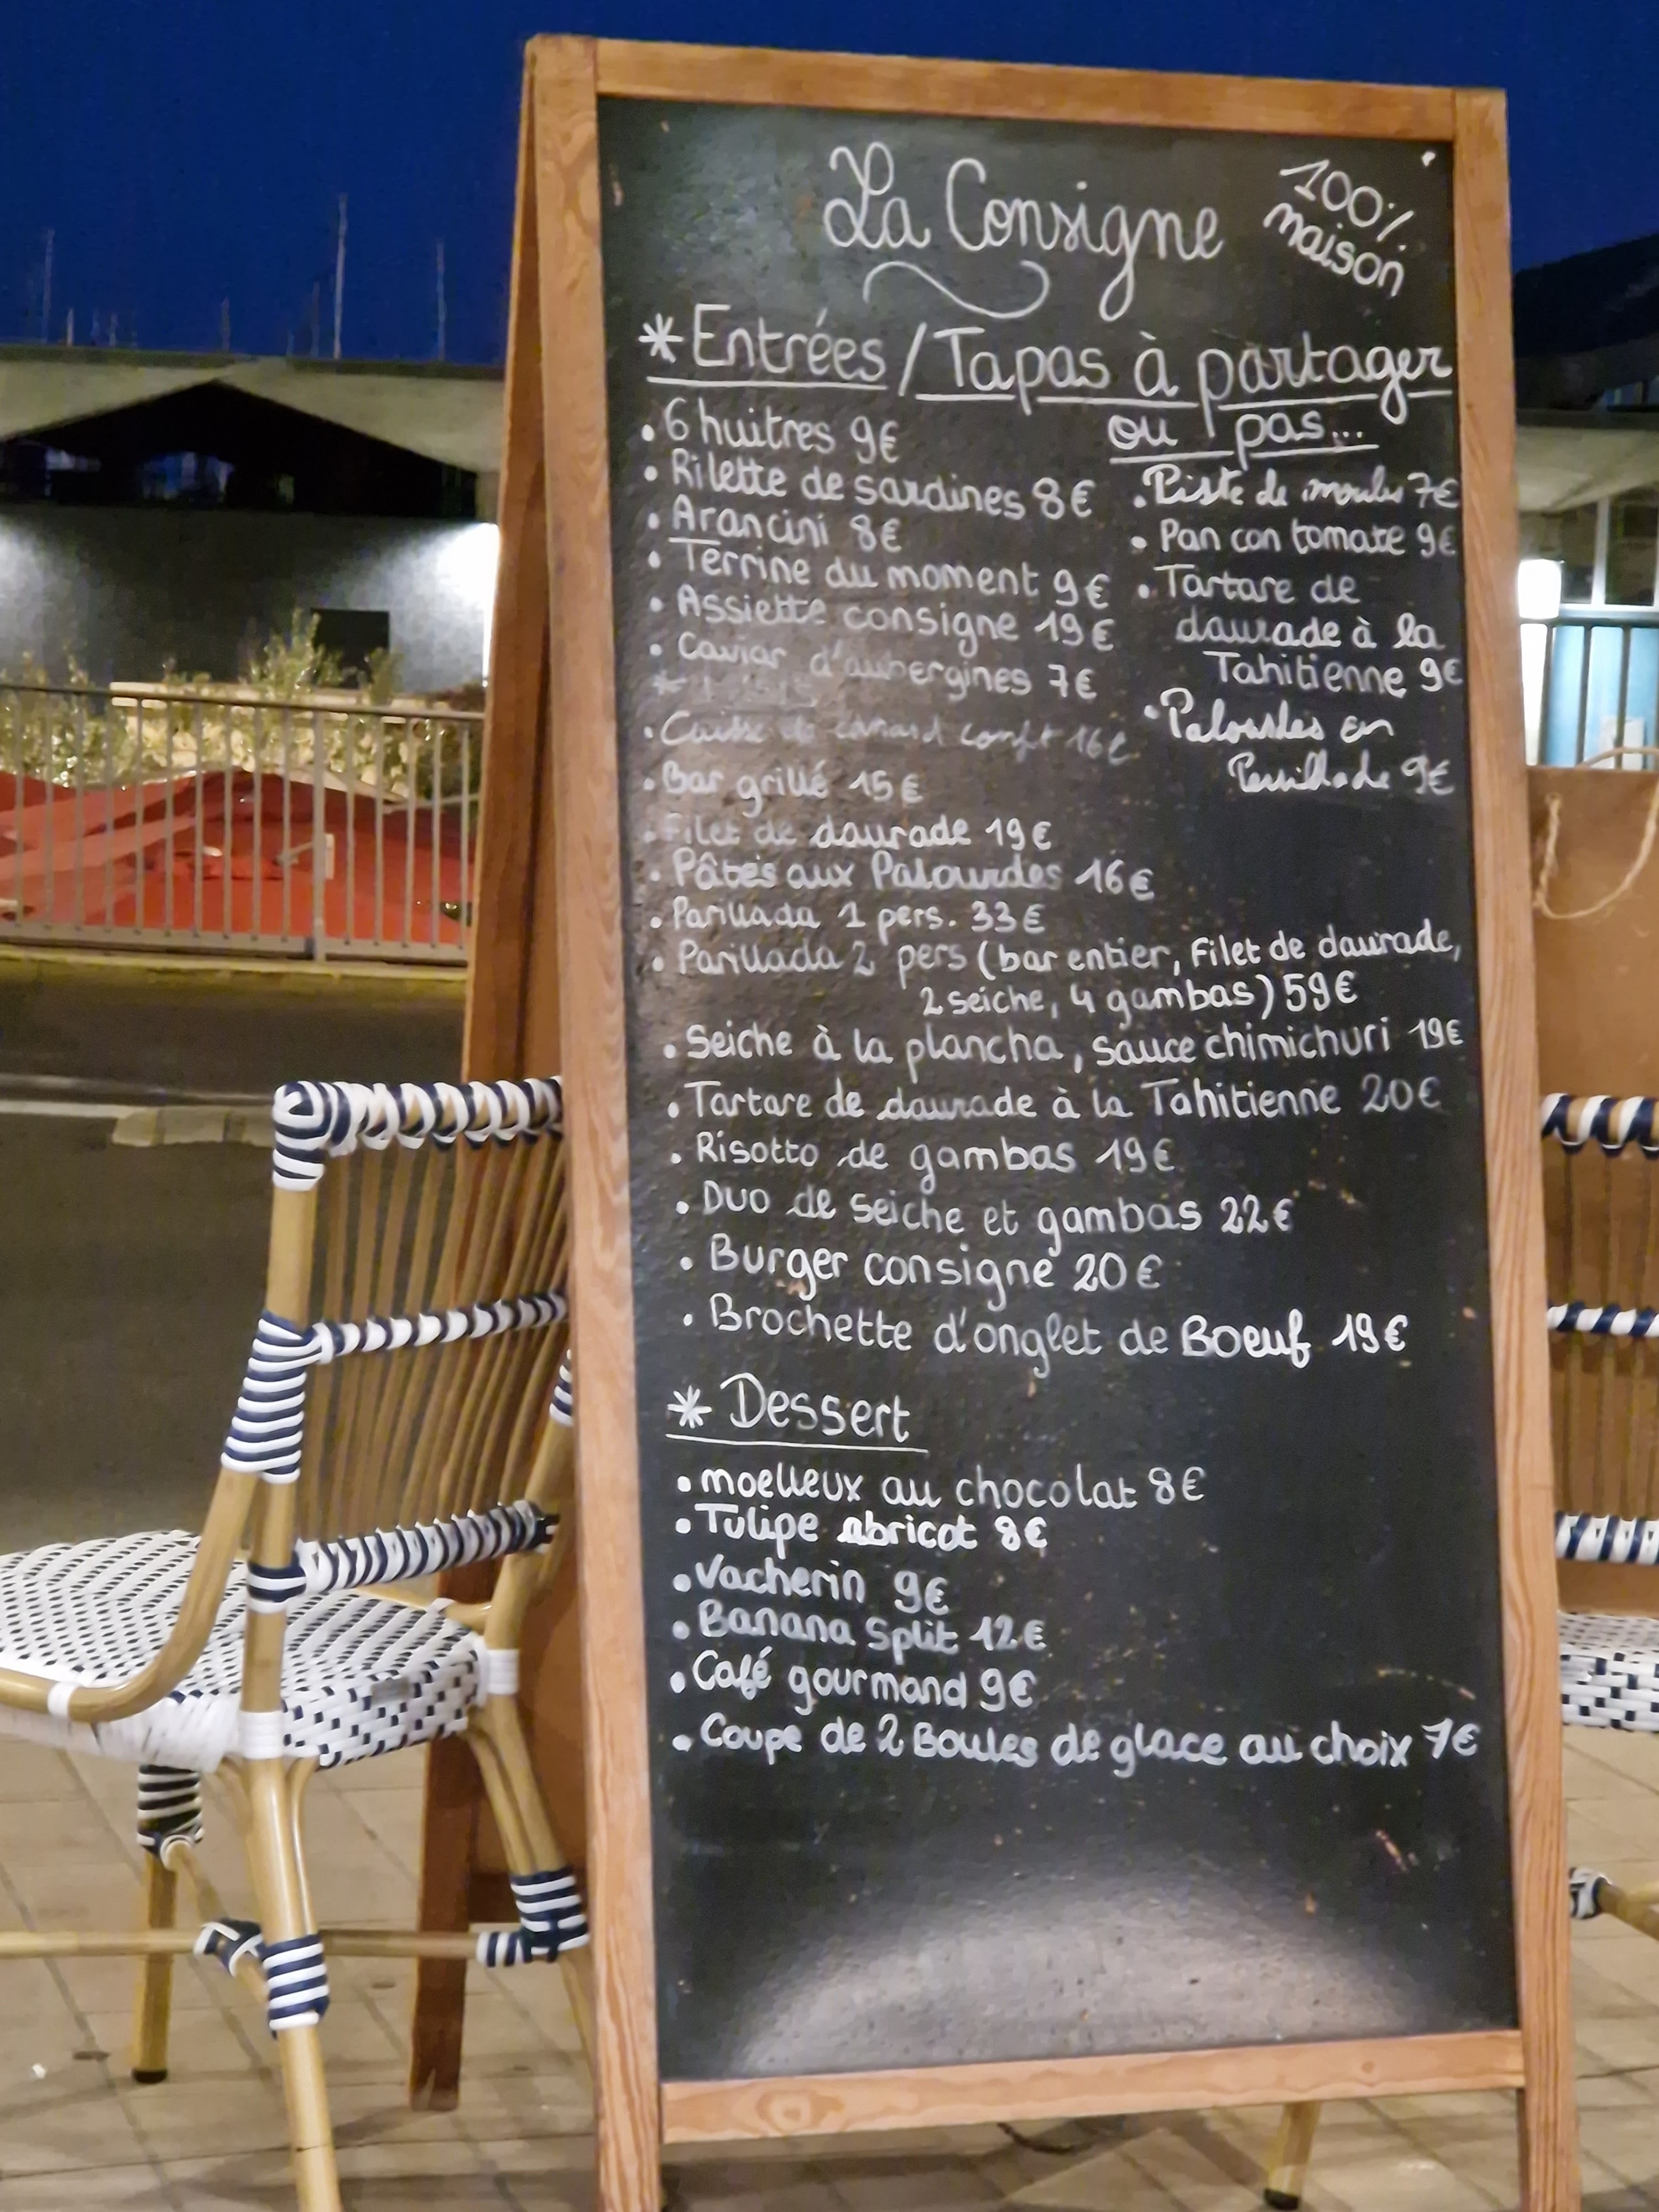 La Consigne
100%
maison
*Entrées/Tapas à partager
ou pas...
. 6 huitres 9€
. Rilette de sardines 8€
. Arancini 8€
. Terrine du moment 9€
. Assiette consigne 19€
. Caviar d'aubergines 7€
. Piste de moules 7€
. Pan con tomate 9€
. Tartare de
daurade à la
Tahitienne 9€
. Palourdes en
9€
*
. Cuisse de canard confit 16€
. Bar grillé 15€
. Filet de daurade 19€
. Pâtes aux Palourdes 16€
. Parillada 1 pers. 33€
. Parillada 2 pers (bar entier, Filet de daurade,
2 seiche, 4 gambas) 59€
. Seiche à la plancha, sauce chimichuri 19€
. Tartare de daurade à la Tahitienne 20€
. Risotto de gambas 19€
. Duo de seiche et gambas 22€
. Burger consigne 20€
. Brochette d'onglet de Boeuf 19€
* Dessert
. moelleux au chocolat 8€
. Tulipe abricot 8€
. Vacherin 9€
. Banana Split 12€
. Café gourmand 9€
. Coupe de 2 Boules de glace au choix 7€